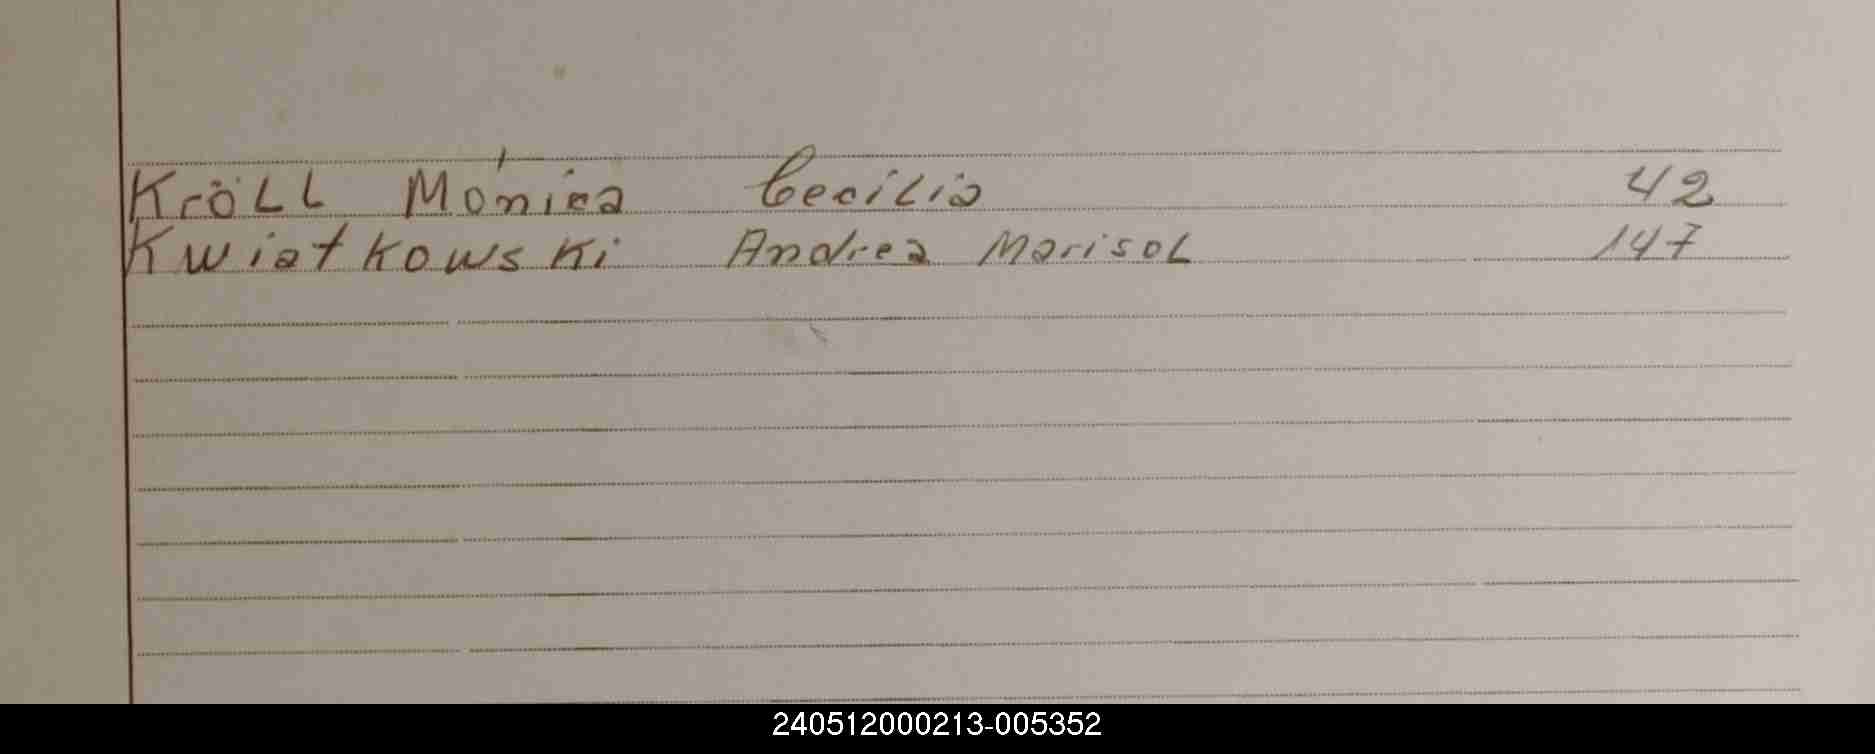 Kröll Mónica Cecilia 42
Kwiatkowski Andrea Marisol 147
240512000213-005352